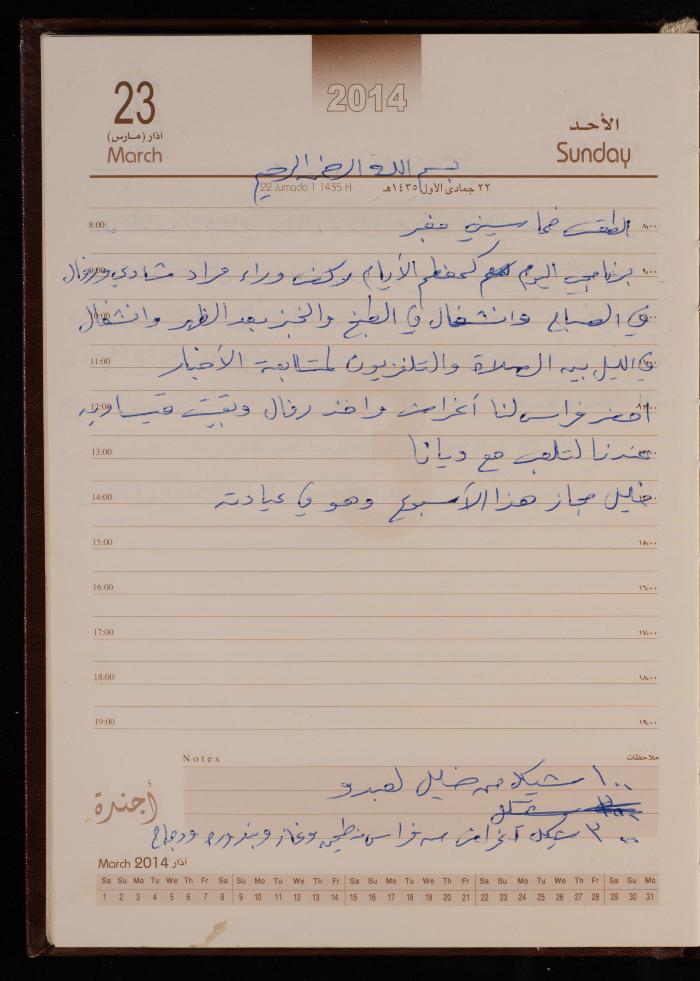 2014
23
آذار (مارس)
March
الأحد
Sunday
بسم الله الرحمن الرحيم
22 Jumada 1 1435 H
٢٢ جمادى الأول ١٤٣٥هـ
8:00 الطقس خماسيني مغبر ٨:٠٠
9:00 برنامجي اليوم كمعظم الأيام ركض وراء مراد شادي ورفال ٩:٠٠
في الصباح وانشغال في الطبخ والخبز بعد الظهر وانشغال
11:00 في الليل بين الصلاة والتلفزيون لمتابعة الأخبار
12:00 احضر فراس لنا أغراض واخذ رفال وبقيت
13:00 عندنا لتلعب مع ديانا
14:00 خليل مجاز هذا الأسبوع وهو في عيادته
15:00 ١٥:٠٠
16:00 ١٦:٠٠
17:00 ١٧:٠٠
18:00 ١٨:٠٠
19:00 ١٩:٠٠
Notes ملاحظات
١٠٠ شيكل من خليل لعبدو
أجندة
٣٠٠ شيكل أغراض من فراس وغاز وبندوره ودجاج
March 2014 آذار
Sa Su Mo Tu We Th Fr Sa Su Mo Tu We Th Fr Sa Su Mo Tu We Th Fr Sa Su Mo Tu We Th Fr Sa Su Mo
1 2 3 4 5 6 7 8 9 10 11 12 13 14 15 16 17 18 19 20 21 22 23 24 25 26 27 28 29 30 31